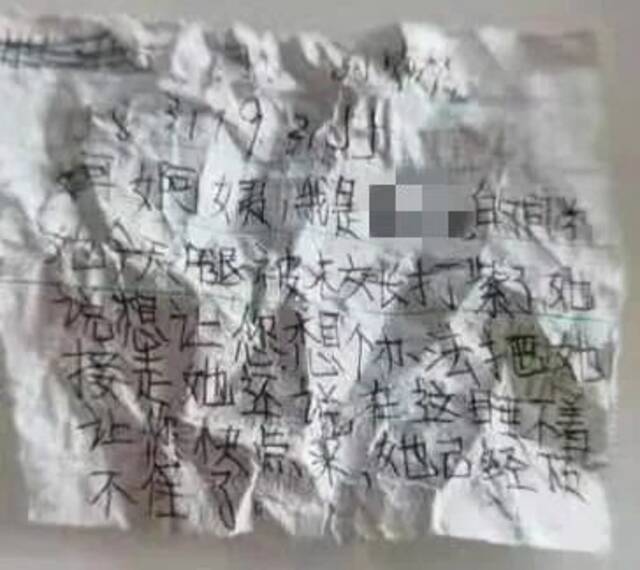 我是 的同学
她今天腿被校长打紫了她
说想让您想个办法把她
接走她还说在这睡不着
让您快点来,她已经顶
不住了